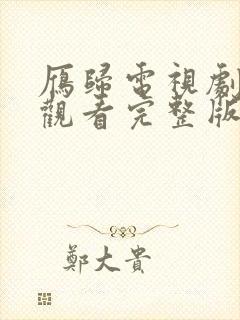 雁歸電視劇
觀看完整版
鄭大貴